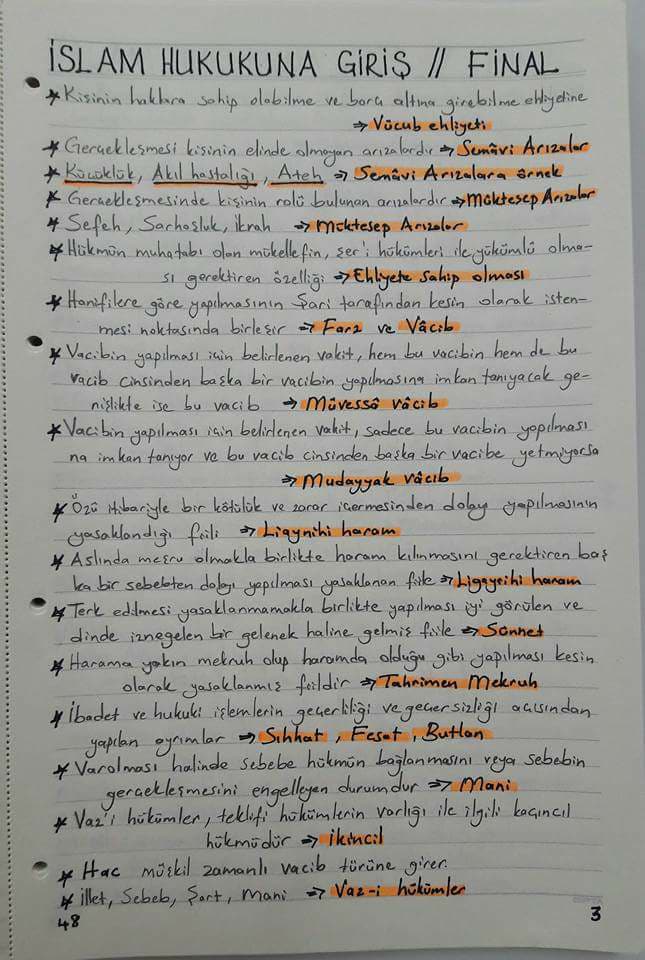 İSLAM HUKUKUNA GİRİŞ // FİNAL
* Kişinin haklara sahip olabilme ve borç altına girebilme ehliyetine
⇒ Vücub ehliyeti
* Gerçekleşmesi kişinin elinde olmayan arızalardır ⇒ Semâvi Arızalar
* Küçüklük, Akıl hastalığı, Ateh ⇒ Semâvi Arızalara örnek
* Gerçekleşmesinde kişinin rolü bulunan arızalardır ⇒ Müktesep Arızalar
* Sefeh, Sarhoşluk, İkrah ⇒ Müktesep Arızalar
* Hükmün muhatabı olan mükellefin, şer'i hükümleri ile yükümlü olma-
sı gerektiren özelliği ⇒ Ehliyete sahip olması
* Hanifilere göre yapılmasının Şari tarafından kesin olarak isten-
mesi noktasında birleşir ⇒ Farz ve Vâcib
* Vacibin yapılması için belirlenen vakit, hem bu vacibin hem de bu
vacib cinsinden başka bir vacibin yapılmasına imkan tanıyacak ge-
nişlikte ise bu vacib ⇒ Müvessâ vâcib
* Vacibin yapılması için belirlenen vakit, sadece bu vacibin yapılması
na imkan tanıyor ve bu vacib cinsinden başka bir vacibe yetmiyorsa
⇒ Mudayyak vâcib
* Özü itibariyle bir kötülük ve zarar içermesinden dolayı yapılmasının
yasaklandığı fiili ⇒ Liaynihi haram
* Aslında meşru olmakla birlikte haram kılınmasını gerektiren baş
ka bir sebebten dolayı yapılması yasaklanan fiile ⇒ Ligayrihi haram
* Terk edilmesi yasaklanmamakla birlikte yapılması iyi görülen ve
dinde iznegelen bir gelenek haline gelmiş fiile ⇒ Sünnet
* Harama yakın mekruh olup haramda olduğu gibi yapılması kesin
olarak yasaklanmış fiildir ⇒ Tahrimen Mekruh
* İbadet ve hukuki işlemlerin geçerliliği ve geçersizliği açısından
yapılan ayrımlar ⇒ Sıhhat, Fesat, Butlan
* Varolması halinde sebebe hükmün bağlanmasını veya sebebin
gerçekleşmesini engelleyen durumdur ⇒ Mani
* Vaz'i hükümler, teklifi hükümlerin varlığı ile ilgili kaçıncıl
hükmüdür ⇒ İkincil
* Hac müşkil zamanlı vacib türüne girer.
* İllet, Sebeb, Şart, Mani ⇒ Vaz-i hükümler
48 3